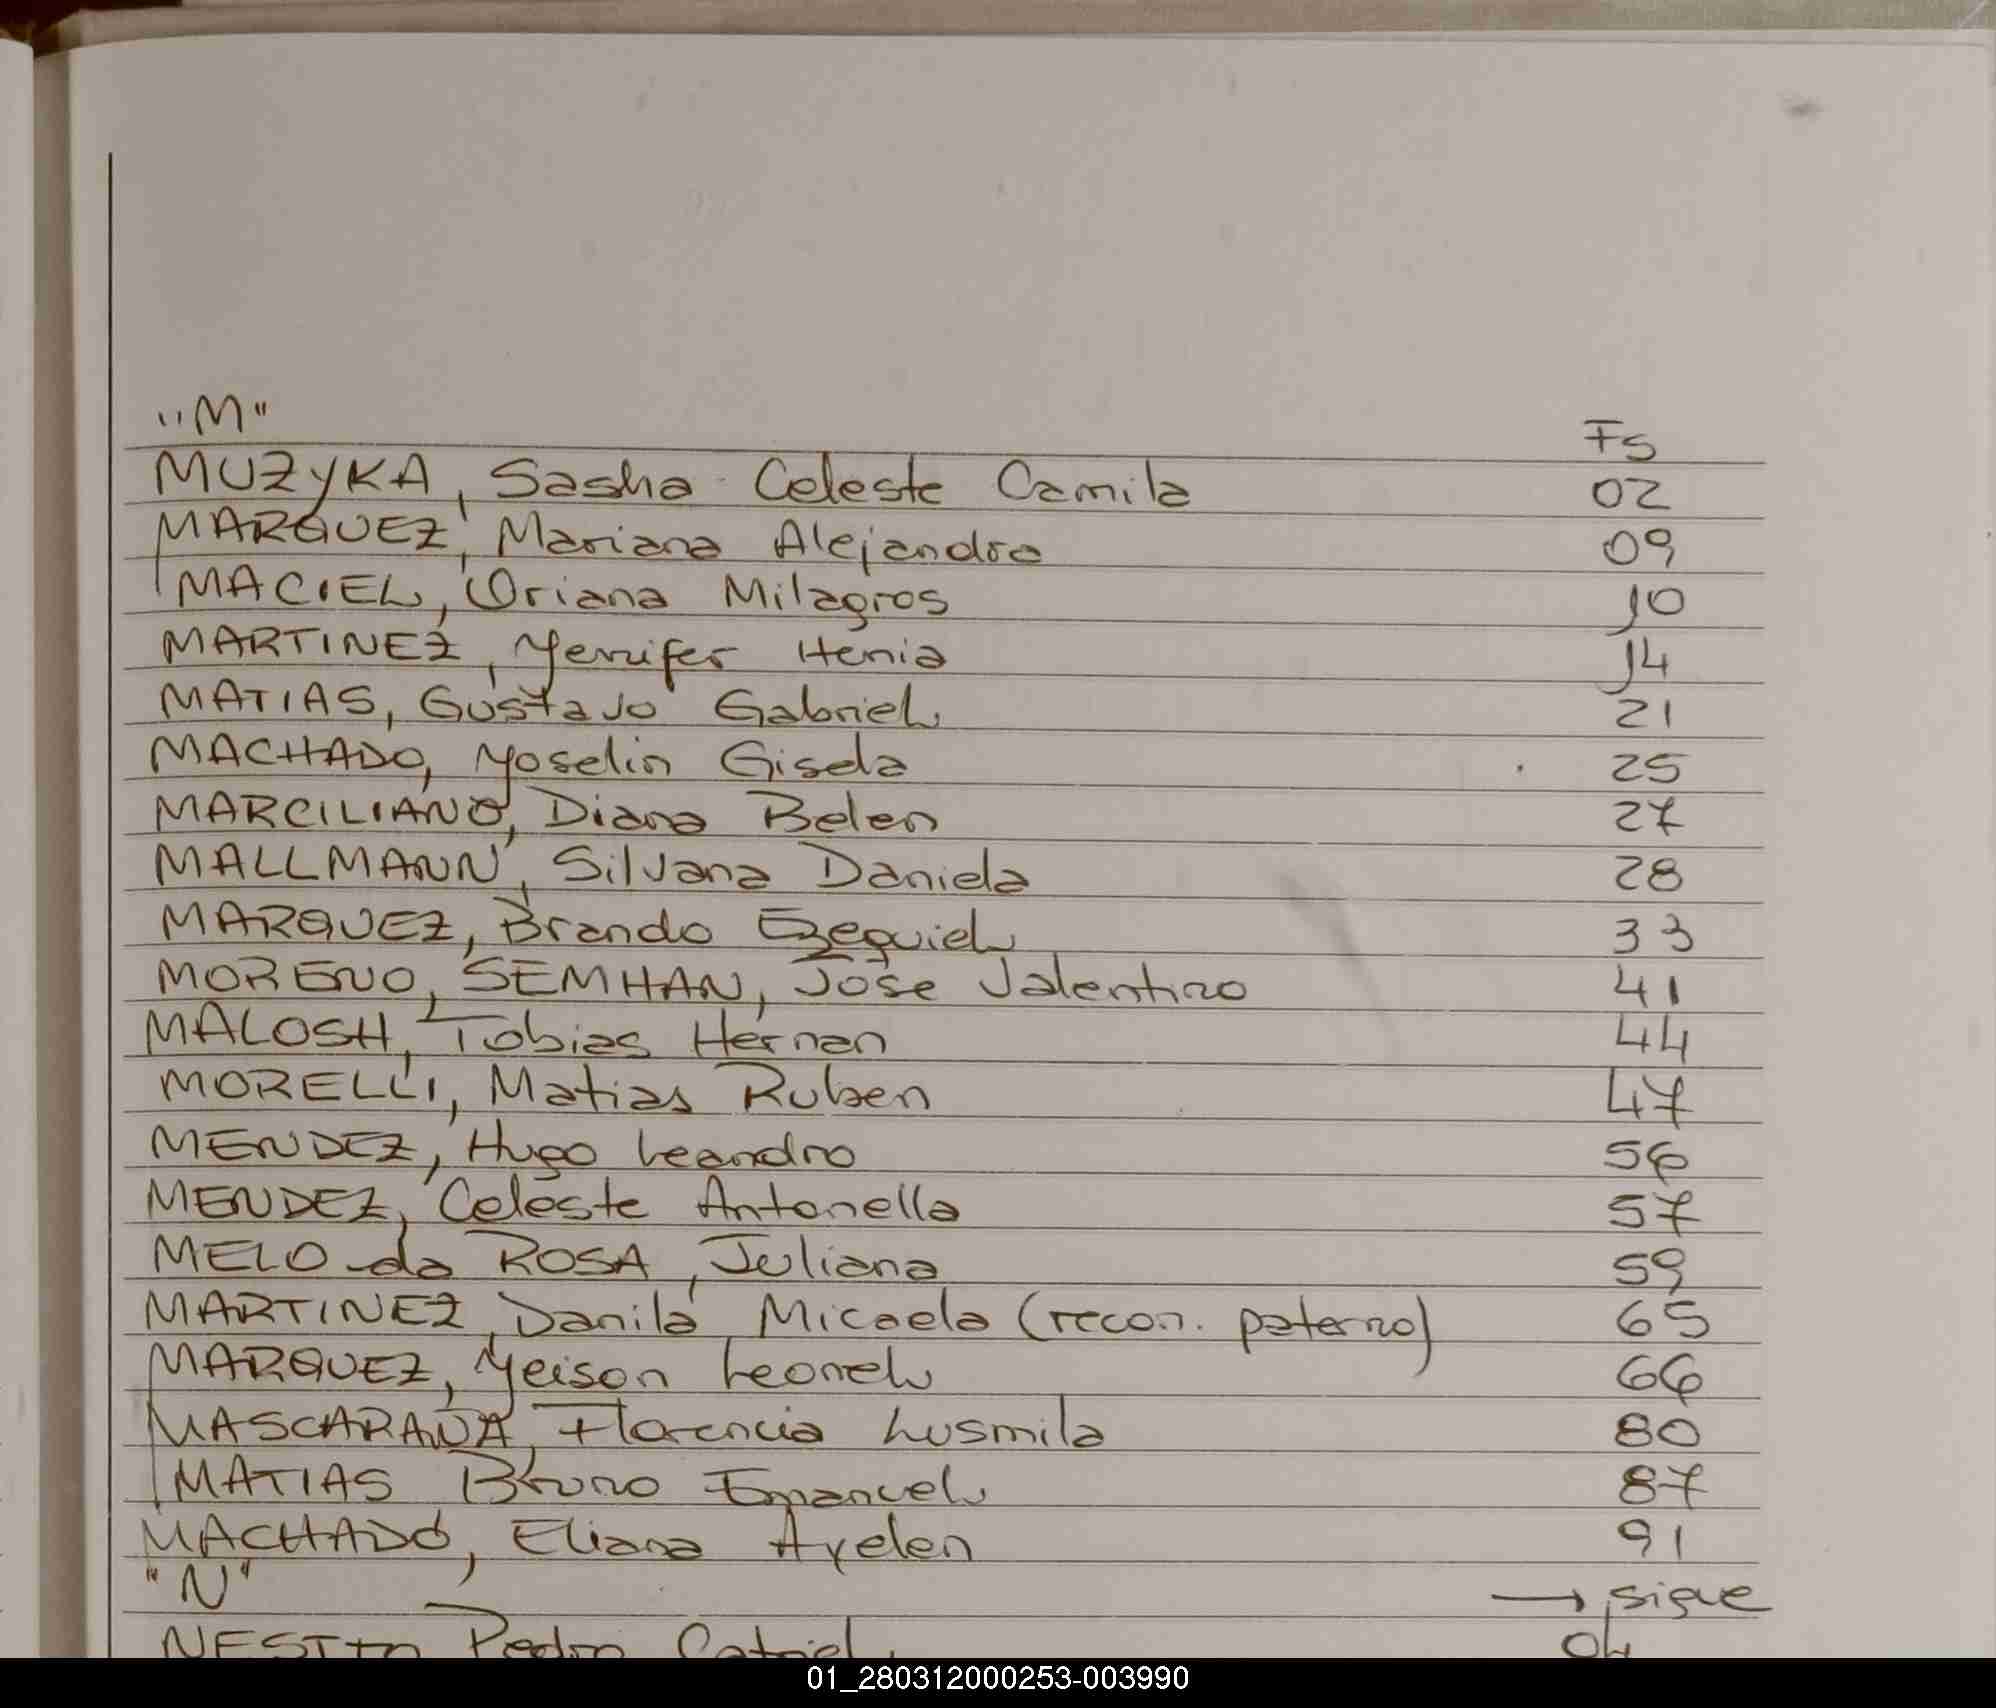 "M"
Fs
MUZYKA, Sasha Celeste Camila 02
MARQUEZ, Mariana Alejandra 09
MACIEL, Oriana Milagros 10
MARTINEZ, Yennifer Henia 14
MATIAS, Gustavo Gabriel 21
MACHADO, Yoselin Gisela 25
MARCILIANO, Diana Belen 27
MALLMANN, Silvana Daniela 28
MARQUEZ, Brando Ezequiel 33
MORENO, SEMHAN, Jose Valentino 41
MALOSH, Tobias Hernan 44
MORELLI, Matias Ruben 47
MENDEZ, Hugo Leandro 56
MENDEZ, Celeste Antonella 57
MELO da ROSA, Juliana 59
MARTINEZ, Danila Micaela (recon. paterno) 65
MARQUEZ, Yeison Leonel 66
MASCARAÑA, Florencia Lusmila 80
MATIAS Bruno Emanuel 87
MACHADO, Eliana Ayelen 91
"N" → sigue
Pedro 04
01_280312000253-003990